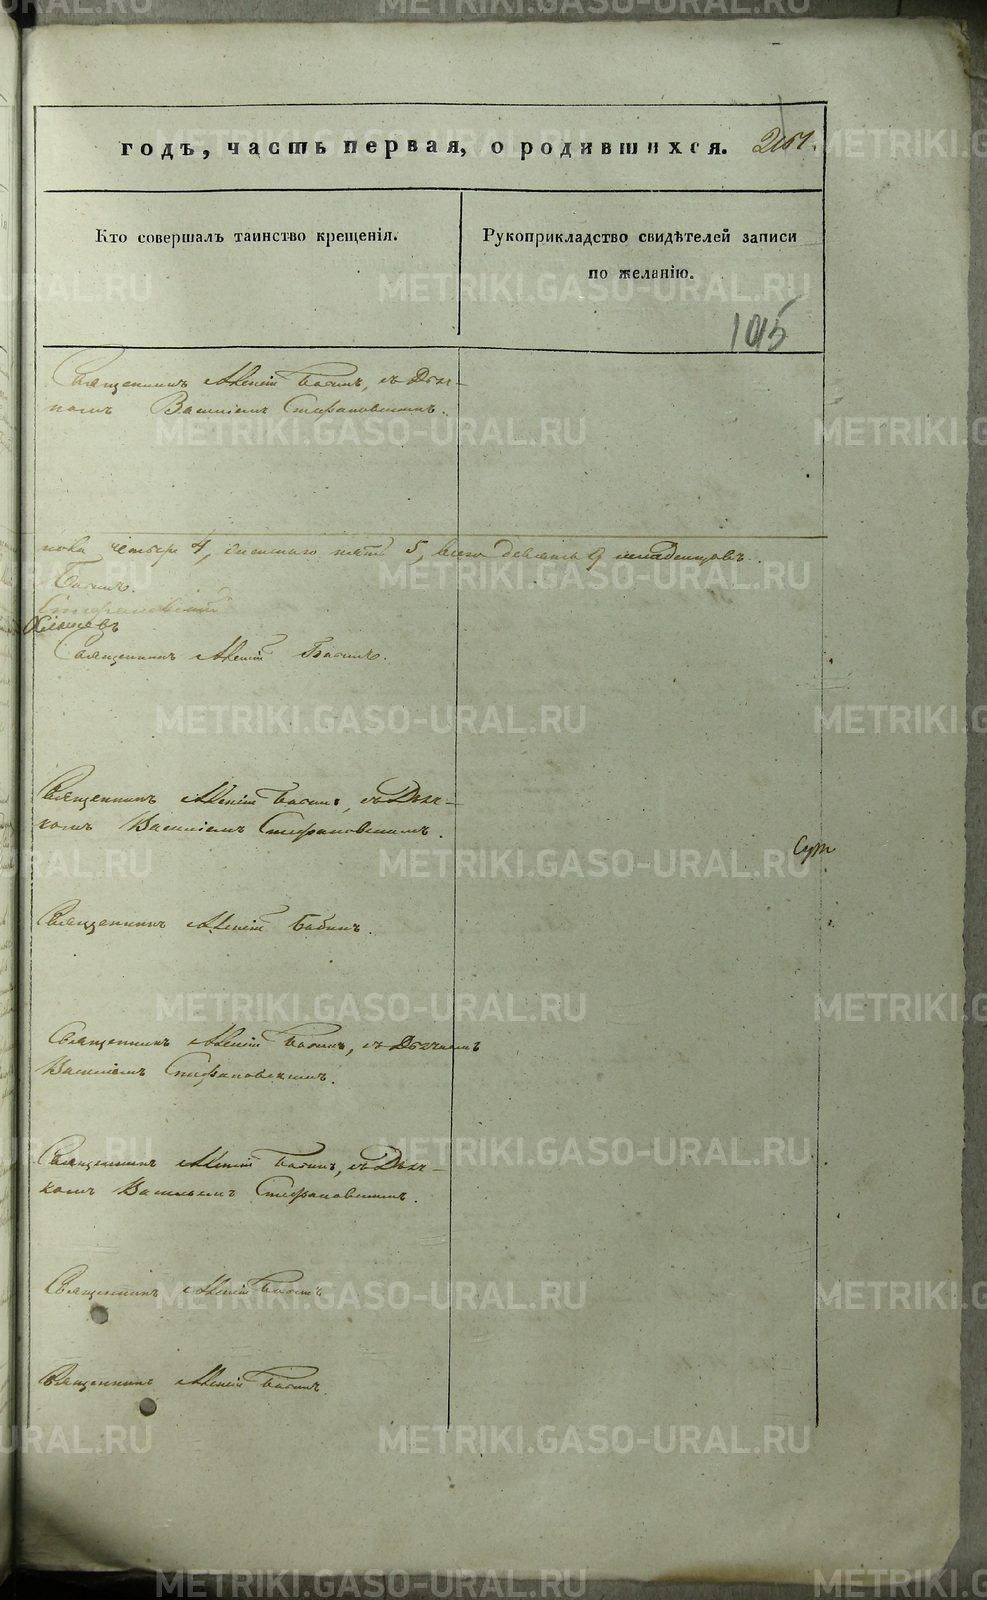 METRIKI.GASO-URAL.RU
годъ, часть первая, о родившихся. 261.
Кто совершалъ таинство крещенія.
Рукоприкладство свидѣтелей записи
по желанію.
105
Священникъ Алексій Бабинъ, съ Дьяч-
комъ Василіемъ Стефановскимъ.
пола четыре 4, женскаго пять 5, всего девять 9 младенцовъ.
Бабинъ.
Стефановскій
Священникъ Алексій Бабинъ.
Священникъ Алексій Бабинъ, съ Дьяч-
комъ Василіемъ Стефановскимъ.
Священникъ Алексій Бабинъ.
Священникъ Алексій Бабинъ, съ Дьячкомъ
Василіемъ Стефановскимъ.
Священникъ Алексій Бабинъ, съ Дьяч-
комъ Васильемъ Стефановскимъ.
Священникъ Алексій Бабинъ
Священникъ Алексій Бабинъ.